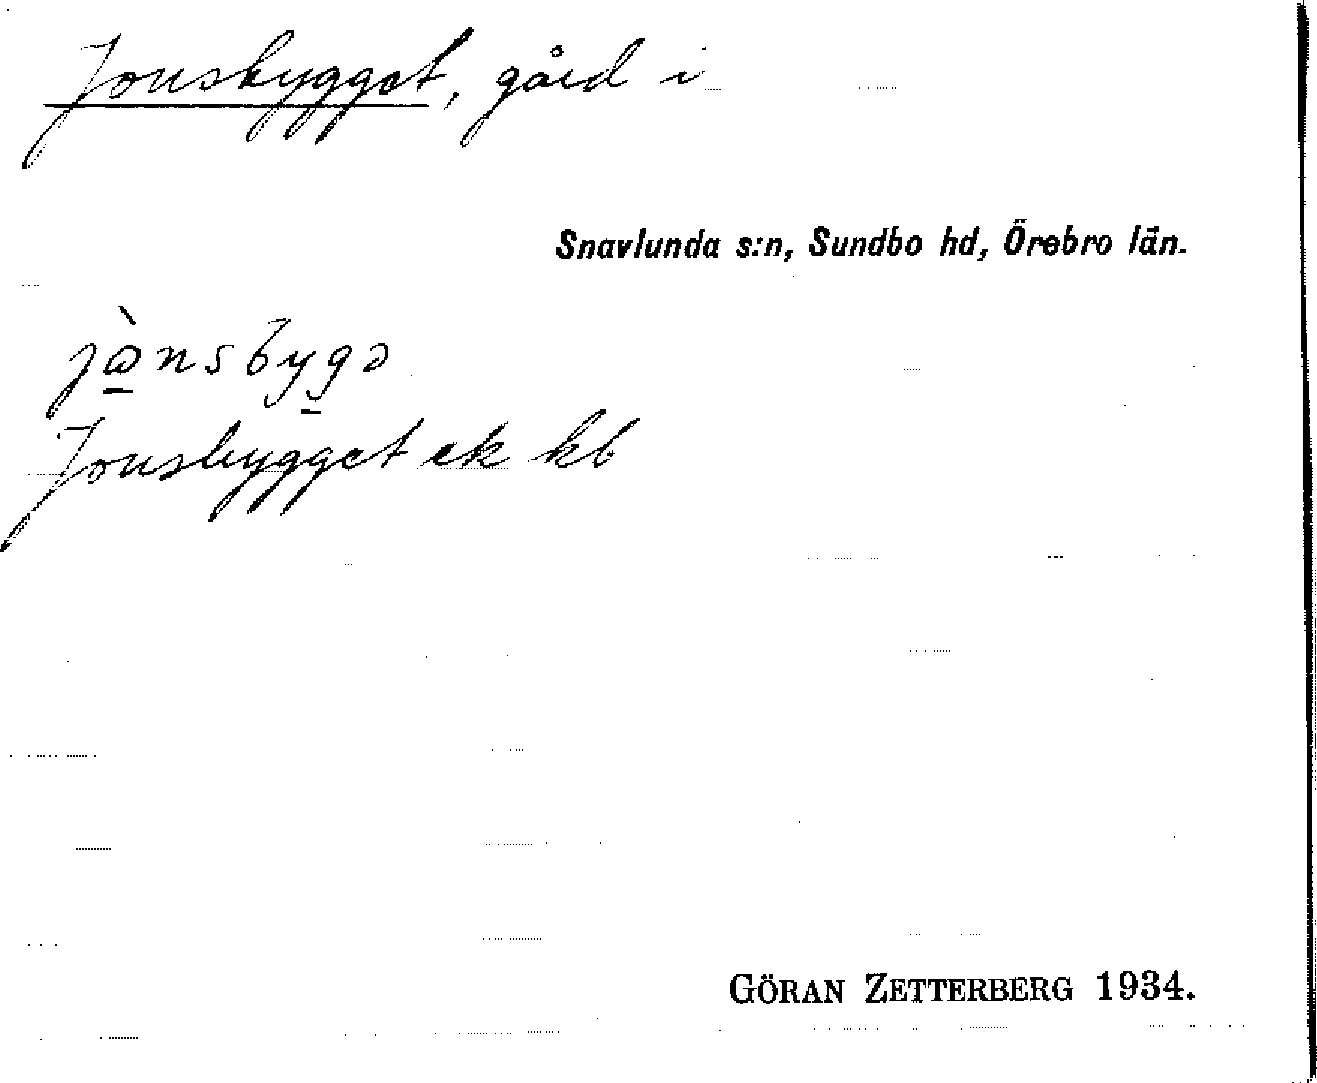 Jonsbygget, gård i
Snavlunda s:n, Sundbo hd, Örebro län.
jò̱nsbyg̱ə
Jonsbygget ek kb
GÖRAN ZETTERBERG 1934.